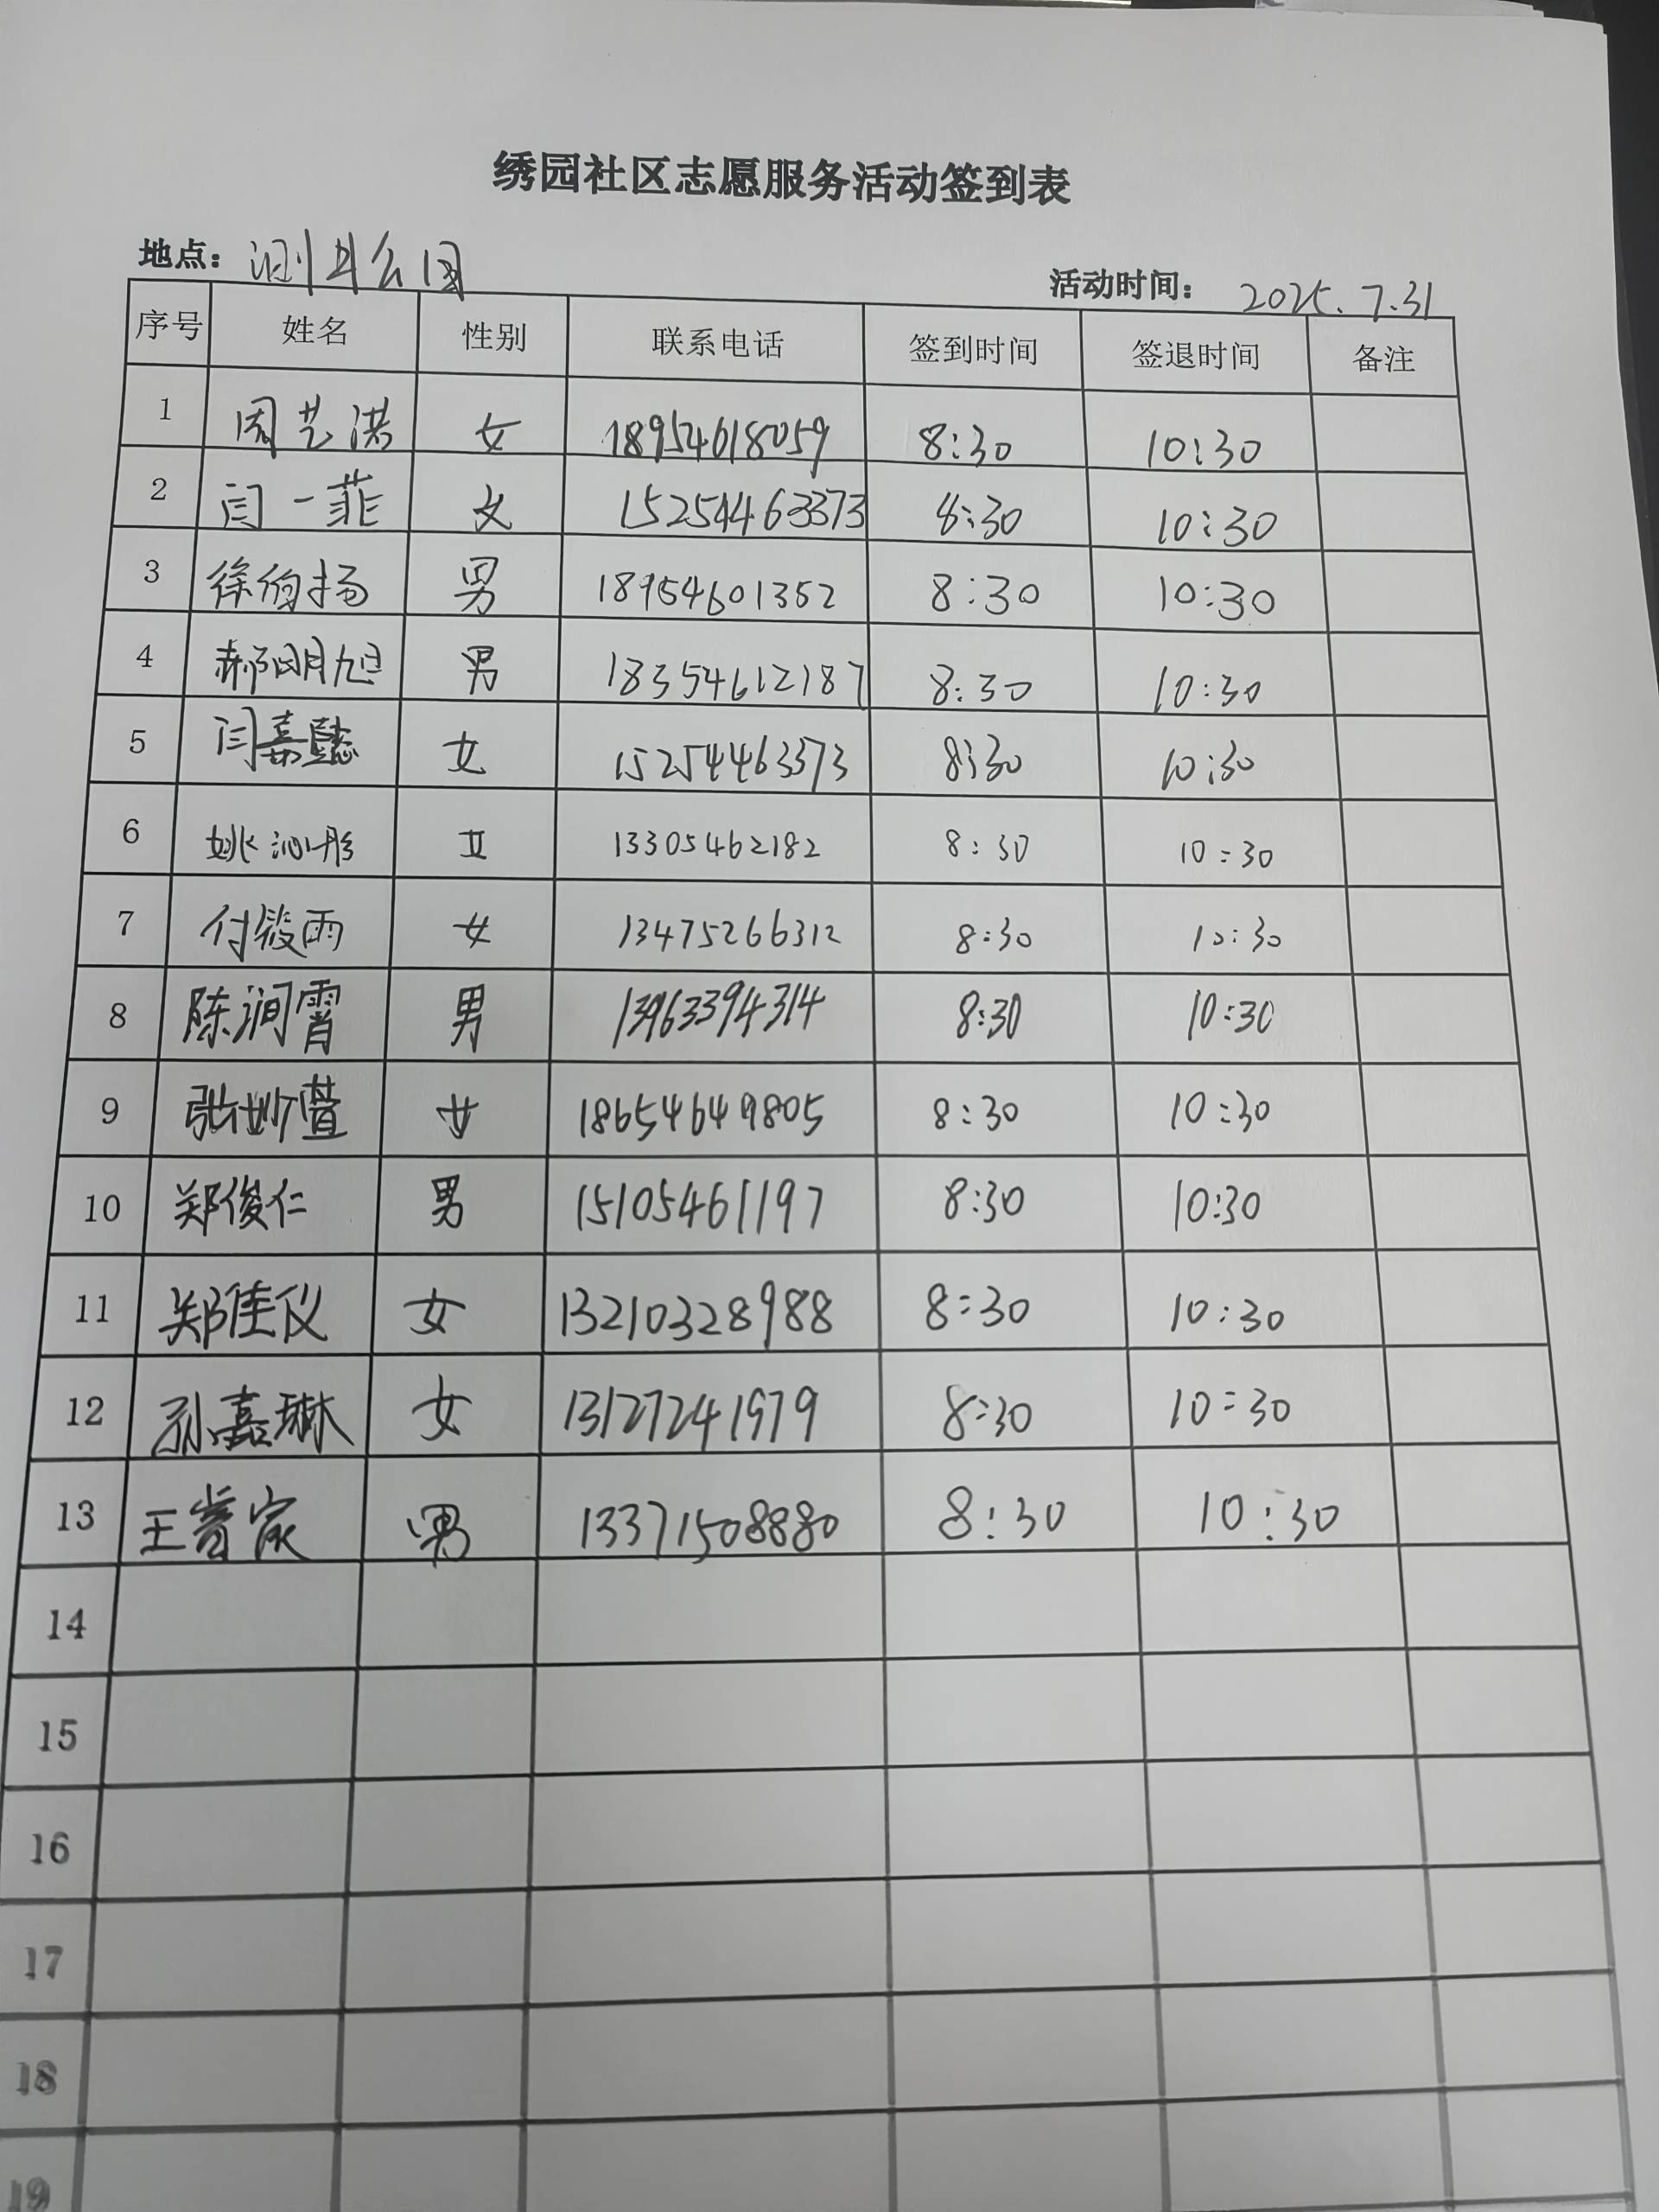 绣园社区志愿服务活动签到表
地点：测井公园 活动时间：2025.7.31
序号 姓名 性别 联系电话 签到时间 签退时间 备注
1 周艺洪 女 18954618059 8:30 10:30
2 闫一菲 女 15254463373 8:30 10:30
3 徐伯扬 男 18954601352 8:30 10:30
4 郝明旭 男 18354612187 8:30 10:30
5 闫嘉懿 女 15254463373 8:30 10:30
6 姚沁彤 女 13305462182 8:30 10:30
7 付筱雨 女 13475266312 8:30 10:30
8 陈润霄 男 13963394314 8:30 10:30
9 张妙萱 女 18654649805 8:30 10:30
10 郑俊仁 男 15105461197 8:30 10:30
11 郑佳仪 女 13210328988 8:30 10:30
12 孙嘉琳 女 13127241979 8:30 10:30
13 王睿家 男 13371508880 8:30 10:30
14
15
16
17
18
19